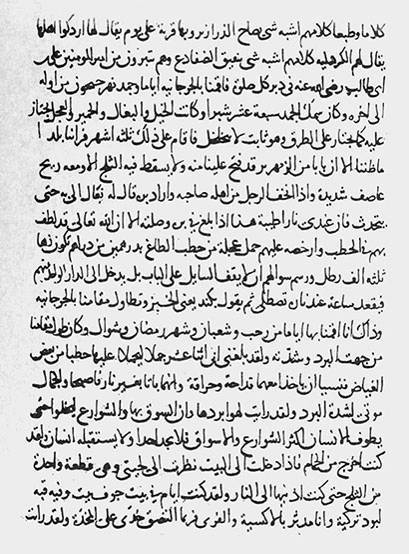 كلاما وطبعا كلامهم اشبه شى بصياح الزرازير وبها قرية على يوم يقال لها اردكوا اهلها
يقال لهم الكردلية كلامهم اشبه شى بنقيق الضفادع وهم يتبرون من امير المومنين على بن
ابى طالب رضى الله عنه فى دبر كل صلاة فاقمنا بالجرجانية اياما وجمد نهر جيحون من اوله
الى اخره وكان سمك الجمد سبعة عشر شبرا وكانت الخيل والبغال والحمير والعجل تجتاز
عليه كما تجتاز على الطرق وهو ثابت لا يتخلخل فاقام على ذلك ثلثة اشهر فراينا بلدا
ما ظننا الا ان بابا من الزمهرير قد فتح علينا منه ولا يسقط فيه الثلج الا ومعه ريح
عاصف شديدة واذا اتحف الرجل من اهله صاحبه واراد بره قال له تعال الى حتى
نتحدث فان عندى نارا طيبة هذا اذا بلغ فى بره وصلته الا ان الله تعالى قد لطف
بهم فى الحطب وارخصه عليهم حمل عجلة من حطب الطاغ بدرهمين من دراهم تكون زها
ثلثة الف رطل ورسم سوالهم ان لا يقف السايل على الباب بل يدخل الى دار الواحد منهم
فيقعد ساعة عند ناره يصطلى ثم يقول بكند يعنى الخبز وتطاول مقامنا بالجرجانية
وذاك انا اقمنا بها اياما من رجب وشعبان وشهر رمضان وشوال وكان طول مقامنا
من جهت البرد وشدته ولقد بلغنى ان اثنا عشر جملا ليحملا عليها حطبا من بعض
الغياض فنسيا ان ياخذا معهما قداحة وحراقة وانهما باتا بغير نار فاصبحا والجمال
موتى لشدة البرد ولقد رايت لهوا بردها وان السوق بها والشوارع لتخلوا حتى
يطوف الانسان اكثر الشوارع والاسواق فلا يجد احدا ولا يستقبله انسان ولقد
كنت اخرج من الحمام فاذا دخلت الى البيت نظرت الى لحيتى وهى قطعة واحدة
من الثلج حتى كنت ادنيها الى النار ولقد كنت انام فى بيت جوف بيت وفيه قبة
لبود تركية وانا مدثر بالاكسية والفرى فربما التصق خدى على المخدة ولقد رايت